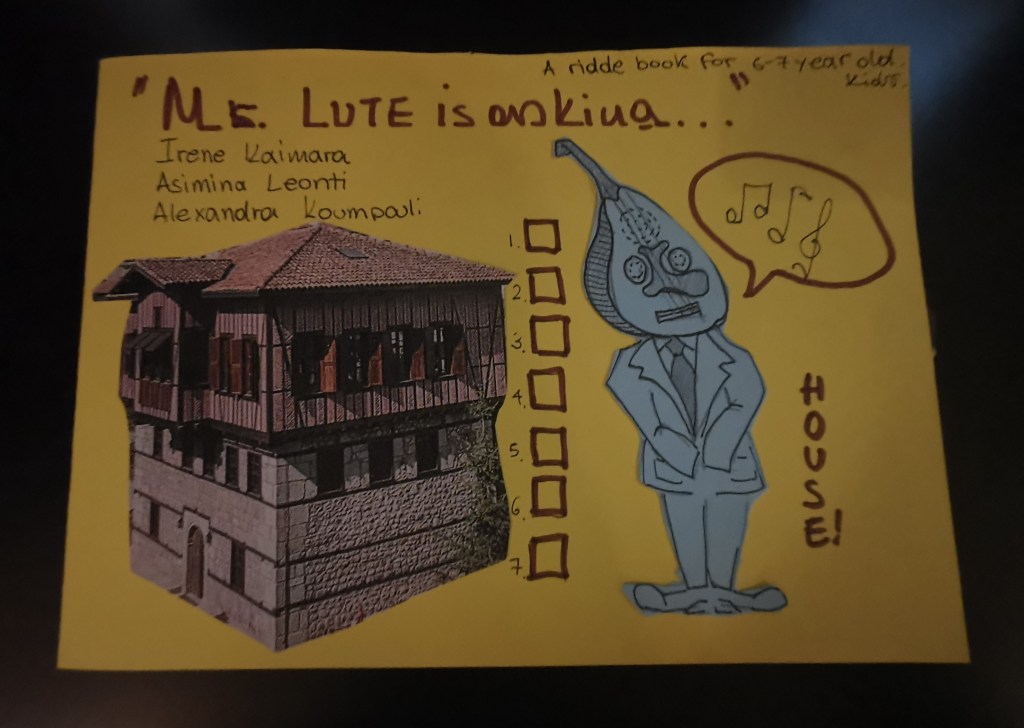 A ridde book for 6-7 year old
kids.
"MR. LUTE is asking..."
Irene Kaimara
Asimina Leonti
Alexandra Koumpouli
1.
2.
3.
4.
5.
6.
7.
HOUSE!